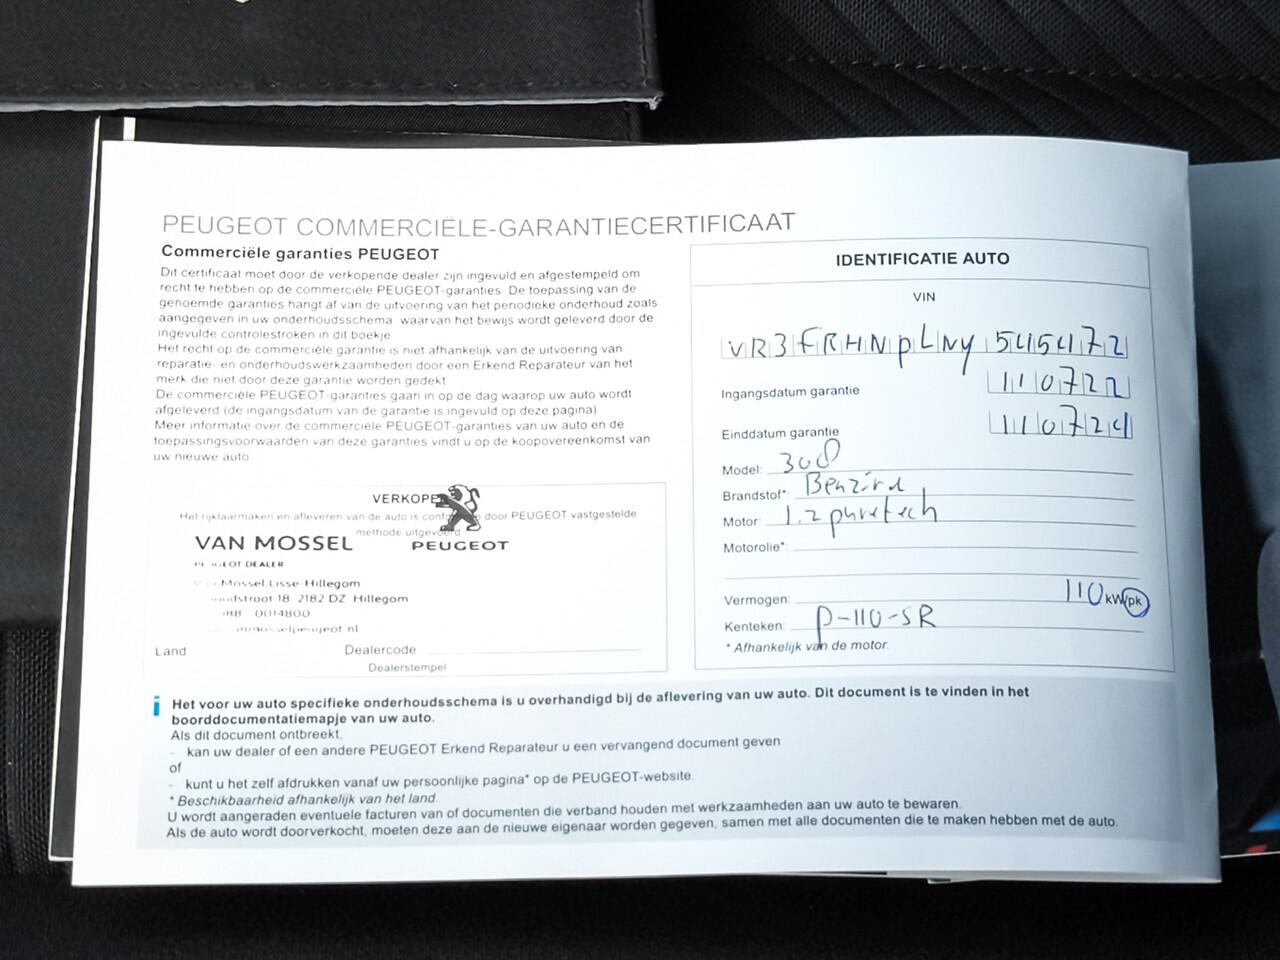 PEUGEOT COMMERCIËLE-GARANTIECERTIFICAAT
Commerciële garanties PEUGEOT
Dit certificaat moet door de verkopende dealer zijn ingevuld en afgestempeld om
recht te hebben op de commerciële PEUGEOT-garanties. De toepassing van de
genoemde garanties hangt af van de uitvoering van het periodieke onderhoud zoals
aangegeven in uw onderhoudsschema waarvan het bewijs wordt geleverd door de
ingevulde controlestroken in dit boekje
Het recht op de commerciële garantie is niet afhankelijk van de uitvoering van
reparatie- en onderhoudswerkzaamheden door een Erkend Reparateur van het
merk die niet door deze garantie worden gedekt
De commerciële PEUGEOT-garanties gaan in op de dag waarop uw auto wordt
afgeleverd (de ingangsdatum van de garantie is ingevuld op deze pagina)
Meer informatie over de commerciële PEUGEOT-garanties van uw auto en de
toepassingsvoorwaarden van deze garanties vindt u op de koopovereenkomst van
uw nieuwe auto
VERKOPE
Het rijklaarmaken en afleveren van de auto is door PEUGEOT vastgestelde
methode uitgevoerd
VAN MOSSEL
PEUGEOT
PEUGEOT DEALER
Mossel Lisse-Hillegom
18 2182 DZ Hillegom
0014800
Land
Dealercode
Dealerstempel
IDENTIFICATIE AUTO
VIN
VR3FRHNPLNY545472
Ingangsdatum garantie 110722
Einddatum garantie 110724
Model: 308
Brandstof*: Benzine
Motor: 1.2 puretech
Motorolie*:
Vermogen: 110 kW/pk
Kenteken: P-110-SR
* Afhankelijk van de motor.
i
Het voor uw auto specifieke onderhoudsschema is u overhandigd bij de aflevering van uw auto. Dit document is te vinden in het
boorddocumentatiemapje van uw auto.
Als dit document ontbreekt,
- kan uw dealer of een andere PEUGEOT Erkend Reparateur u een vervangend document geven
of
- kunt u het zelf afdrukken vanaf uw persoonlijke pagina* op de PEUGEOT-website.
* Beschikbaarheid afhankelijk van het land.
U wordt aangeraden eventuele facturen van of documenten die verband houden met werkzaamheden aan uw auto te bewaren.
Als de auto wordt doorverkocht, moeten deze aan de nieuwe eigenaar worden gegeven, samen met alle documenten die te maken hebben met de auto.